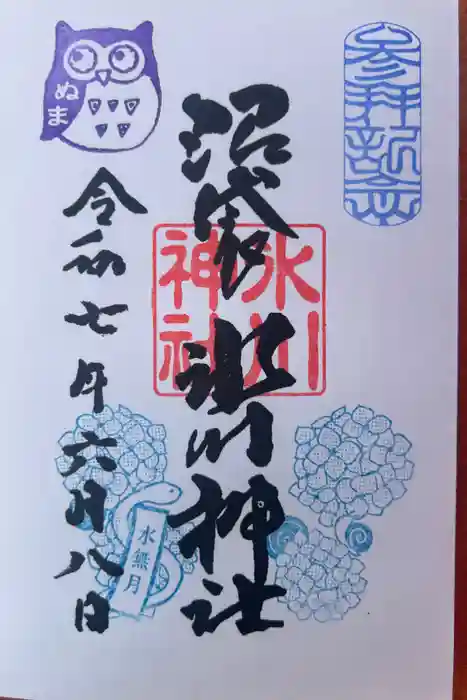 参拝記念
沼袋
氷川神社
氷川
神社
ぬま
令和七年六月八日
水無月